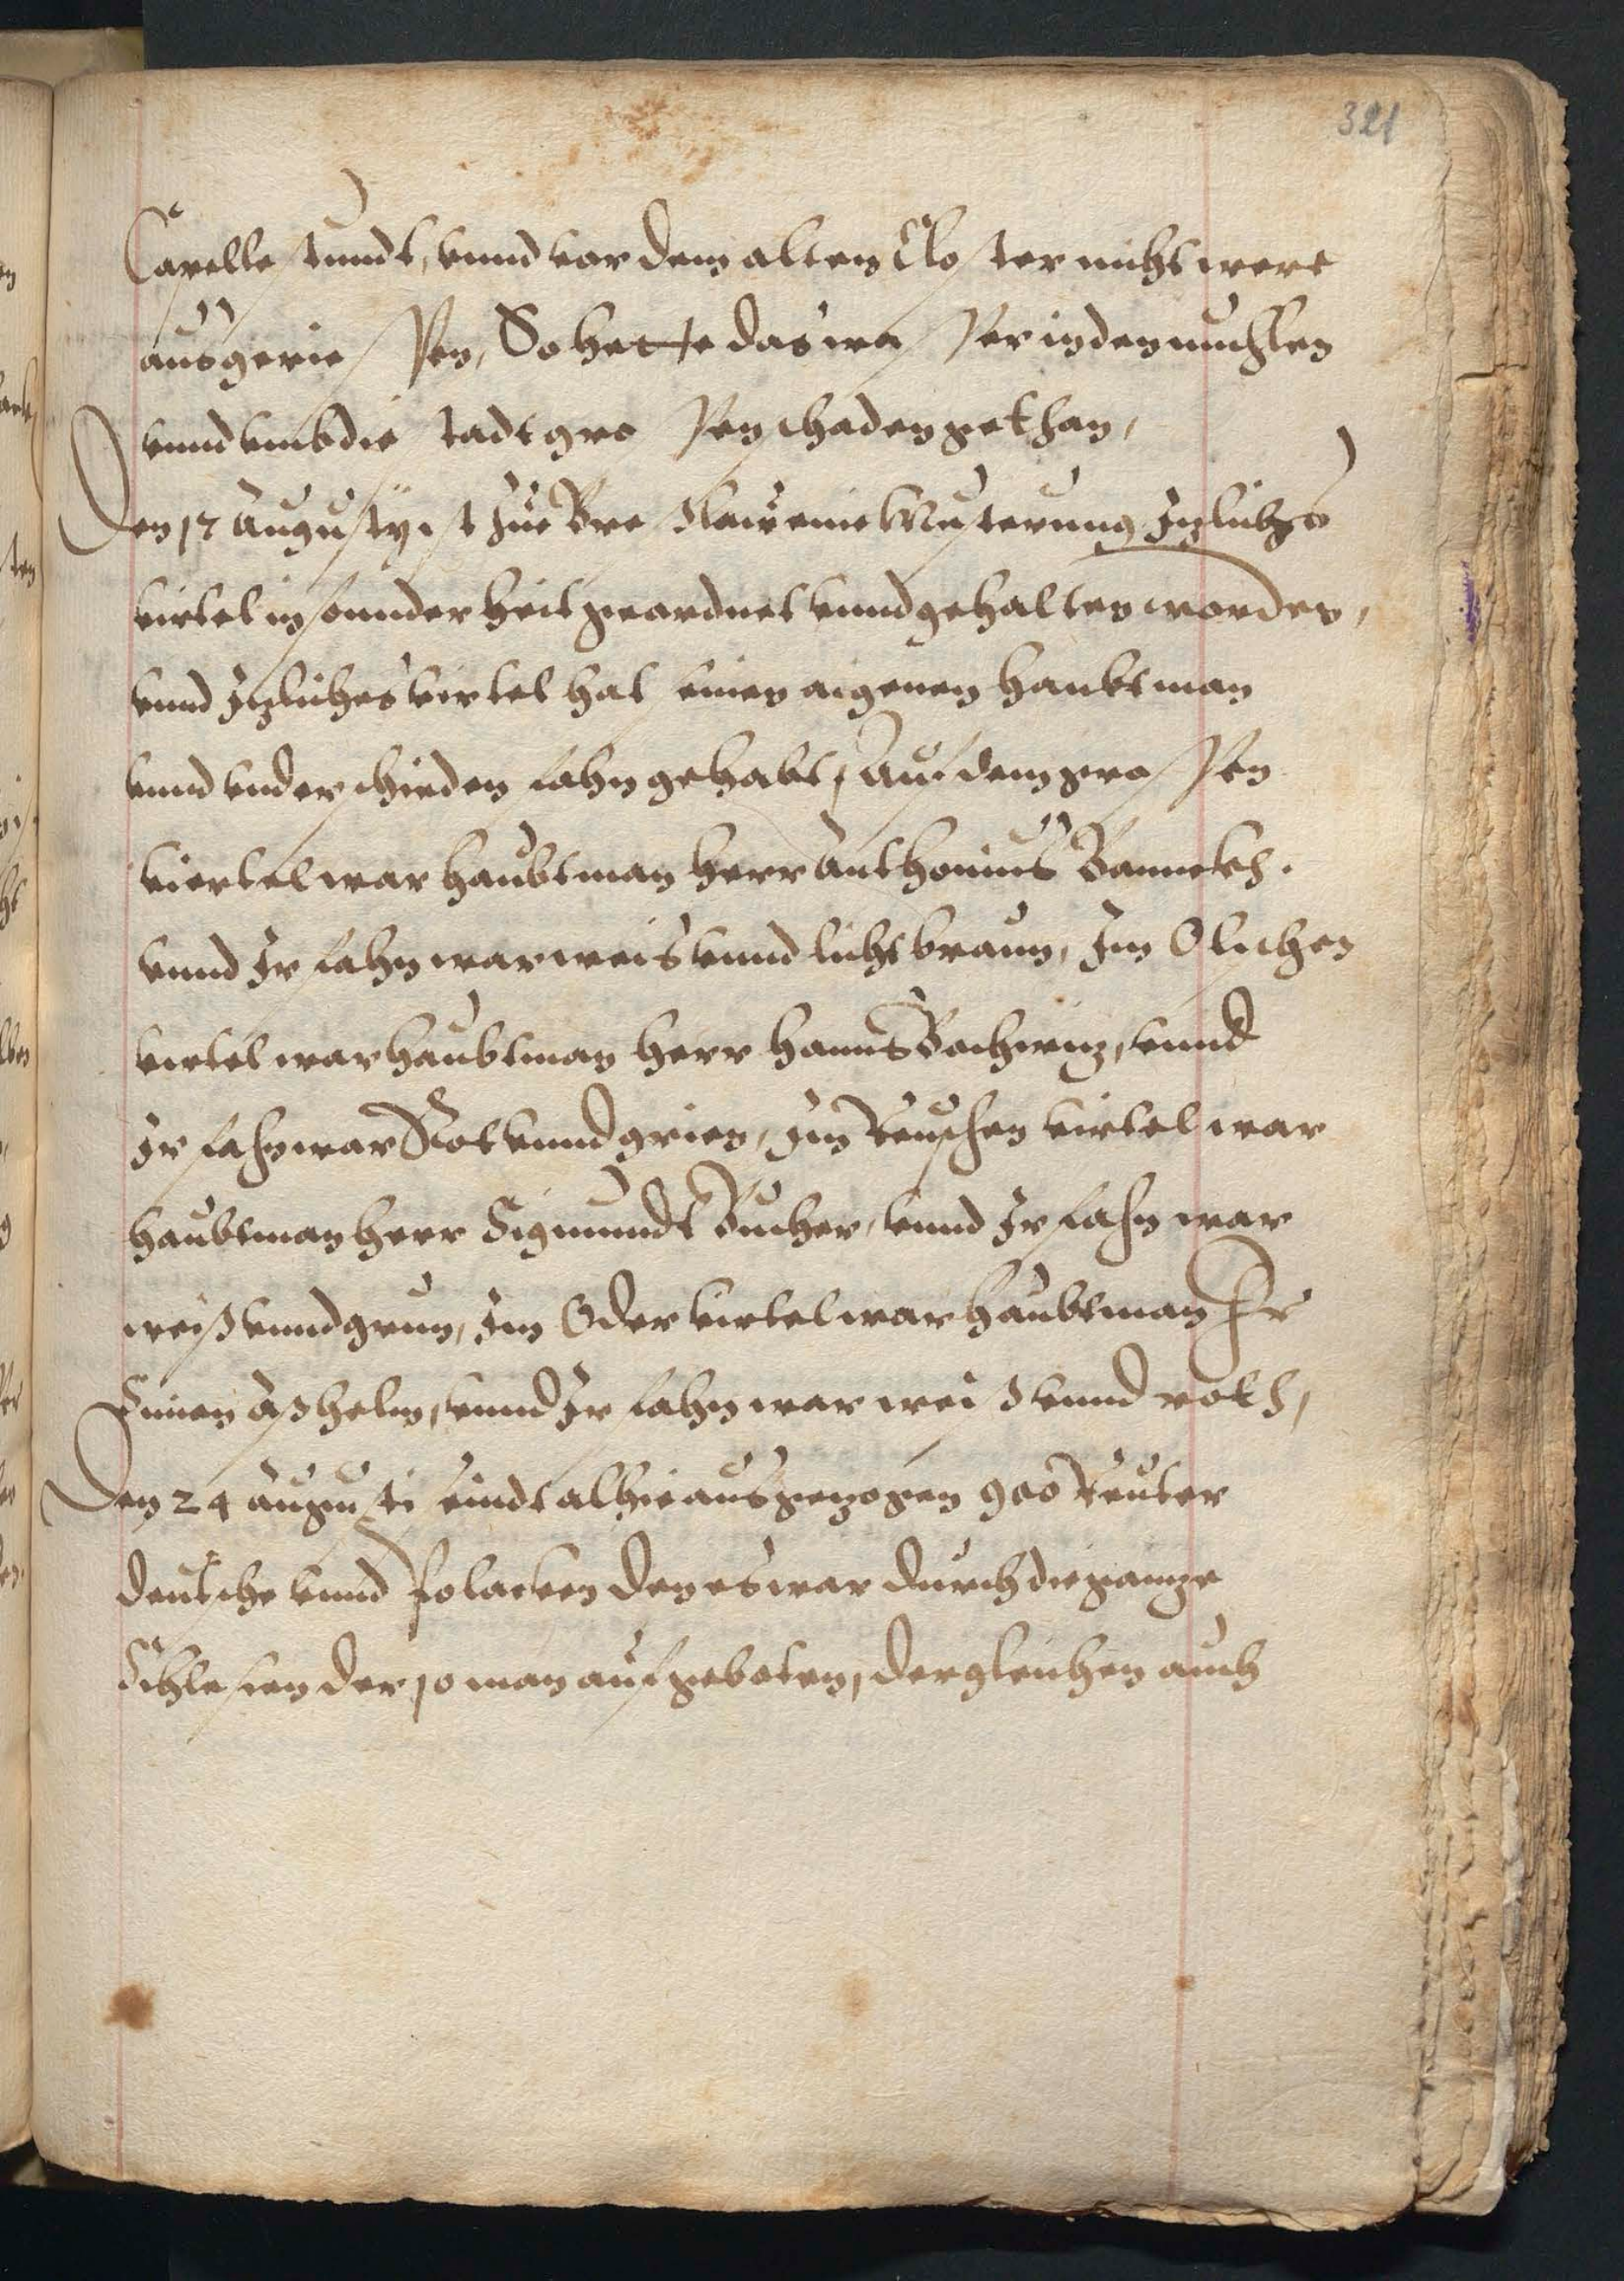 321
Capelle stundt, vnnd vor dem alten Closter nicht were
ausgeriessen, So hette das wasser in den muhlen
vnnd vmb die stadt grossen schaden gethan,
Den 17 Augusty ist zue Breslaw eine Musterung Izliches
virtel in sonnderheit geordnet vnnd gehalten worden,
vnnd Izliches virtel hat einen aigenen haubtman
vnnd vnderschieden fahn gehabt, Auf dem grossen
viertel war haubtman herr Anthonius Banncks.
vnnd Ir fahn war weis vnnd licht braun, Im Olischen
virtel war haubtman herr Hanns Bachwiz, vnnd
Ir fahn war Rot vnnd grien, Im Reuschen virtel war
haubtman herr Sigmundt Bucher, vnnd Ir fahn war
weiß vnnd grun, Im Oder virtel war haubtman Hr
Simon Aßhelm, vnnd Ir fahn war weis vnnd roth,
Den 24 Augusti seindt alhie ausgezogen 900 Reuter
deutsche vnnd Polacken den es war durch die gantze
Schlesien der 10 man aufgeboten, dergleichen auch